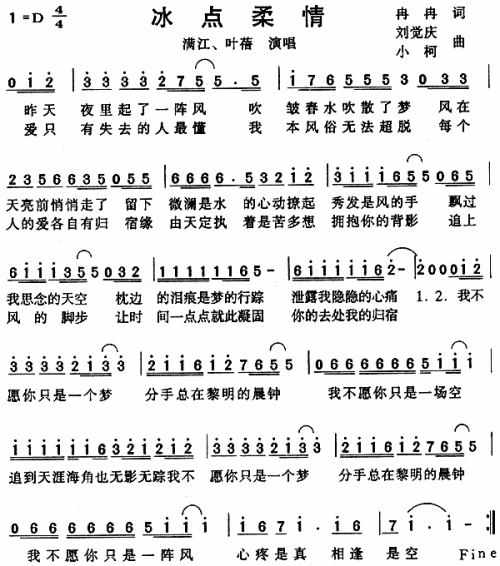 1=D 4/4 冰点柔情 冉冉 词
刘觉庆
小柯 曲
满江、叶蓓 演唱
0 1 2 3 3 3 3 2 7 5 5. 5 | 1 7 6 5 5 5 3 0 3 |
昨天 夜里起了一阵风 吹 皱春水吹散了梦 风在
爱只 有失去的人最懂 我 本风俗无法超脱 每个
2 3 5 6 6 3 5 0 5 5 | 6 6 6 6. 5 3 2 1 2 | 3 1 1 1 6 5 5 0 6 5 |
天亮前悄悄走了 留下 微澜是水 的心动撩起 秀发是风的手 飘过
人的爱各自有归 宿缘 由天定执 着是苦多想 拥抱你的背影 追上
6 1 1 1 3 5 5 0 3 2 | 1 1 1 1 1 1 1 6 5 - | 6 1 1 1 1 1 6 2 - | 2 0 0 0 1 2 |
我思念的天空 枕边 的泪痕是梦的行踪 泄露我隐隐的心痛 1. 2. 我不
风 的 脚步 让时 间一点点就此凝固 你的去处我的归宿
3 3 3 3 2 1 3 3 | 2 1 1 6 1 2 7 6 5 5 | 0 6 6 6 6 6 6 5 1 1 |
愿你只是一个梦 分手总在黎明的晨钟 我不愿你只是一场空
1 1 1 1 1 1 6 3 2 1 2 1 2 | 3 3 3 3 2 1 3 3 | 2 1 1 6 1 2 7 6 5 5 |
追到天涯海角也无影无踪我不 愿你只是一个梦 分手总在黎明的晨钟
0 6 6 6 6 6 6 5 1 1 1 | 1 6 7 1 . 1 6 | 1 . 1 - :||
我不愿你只是一阵风 心疼是真 相逢 是空 Fine